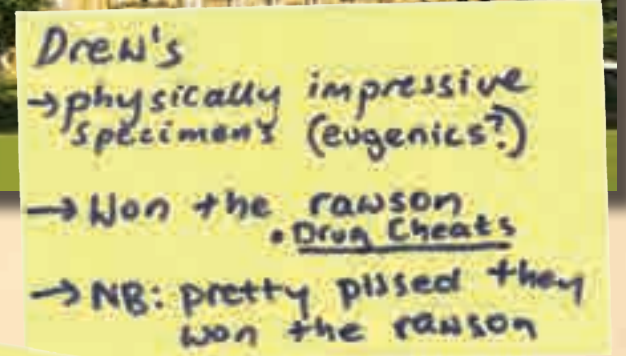 Drew's
→ physically impressive
specimen's (eugenics?)
→ Won the rawson
• Drug Cheats
→ NB: pretty pissed they
won the rawson